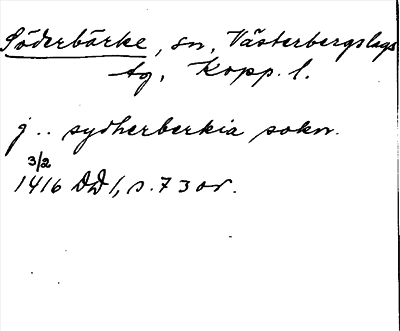 Söderbärke, sn, Västerbergslags
tg, Kopp. l.
j .. sydherberkia sokn.
3/2
1416 DD 1, s. 73 or.